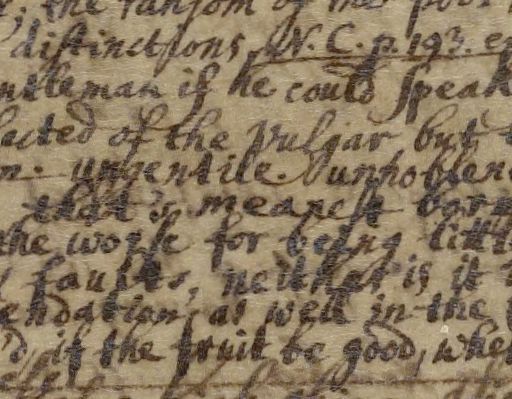 the ransom of the poor
distinctions, N. C. p. 193.
ntleman if he could speak
of the Vulgar but
m. ungentile.
that is meanest born
the worse for being litt
faults, neither is it
endation, as well in the
'd, if the fruit be good, whe